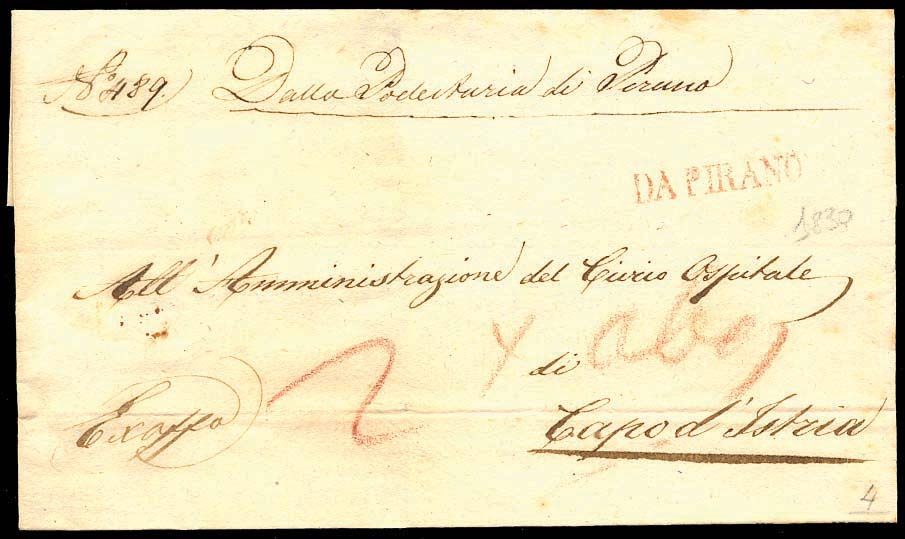 No 489. Dalla Podestaria di Pirano
DA PIRANO
1837
All' Amministrazione del Civico Ospitale
2 x abo
di
Exoffo
Capo d'Istria
4